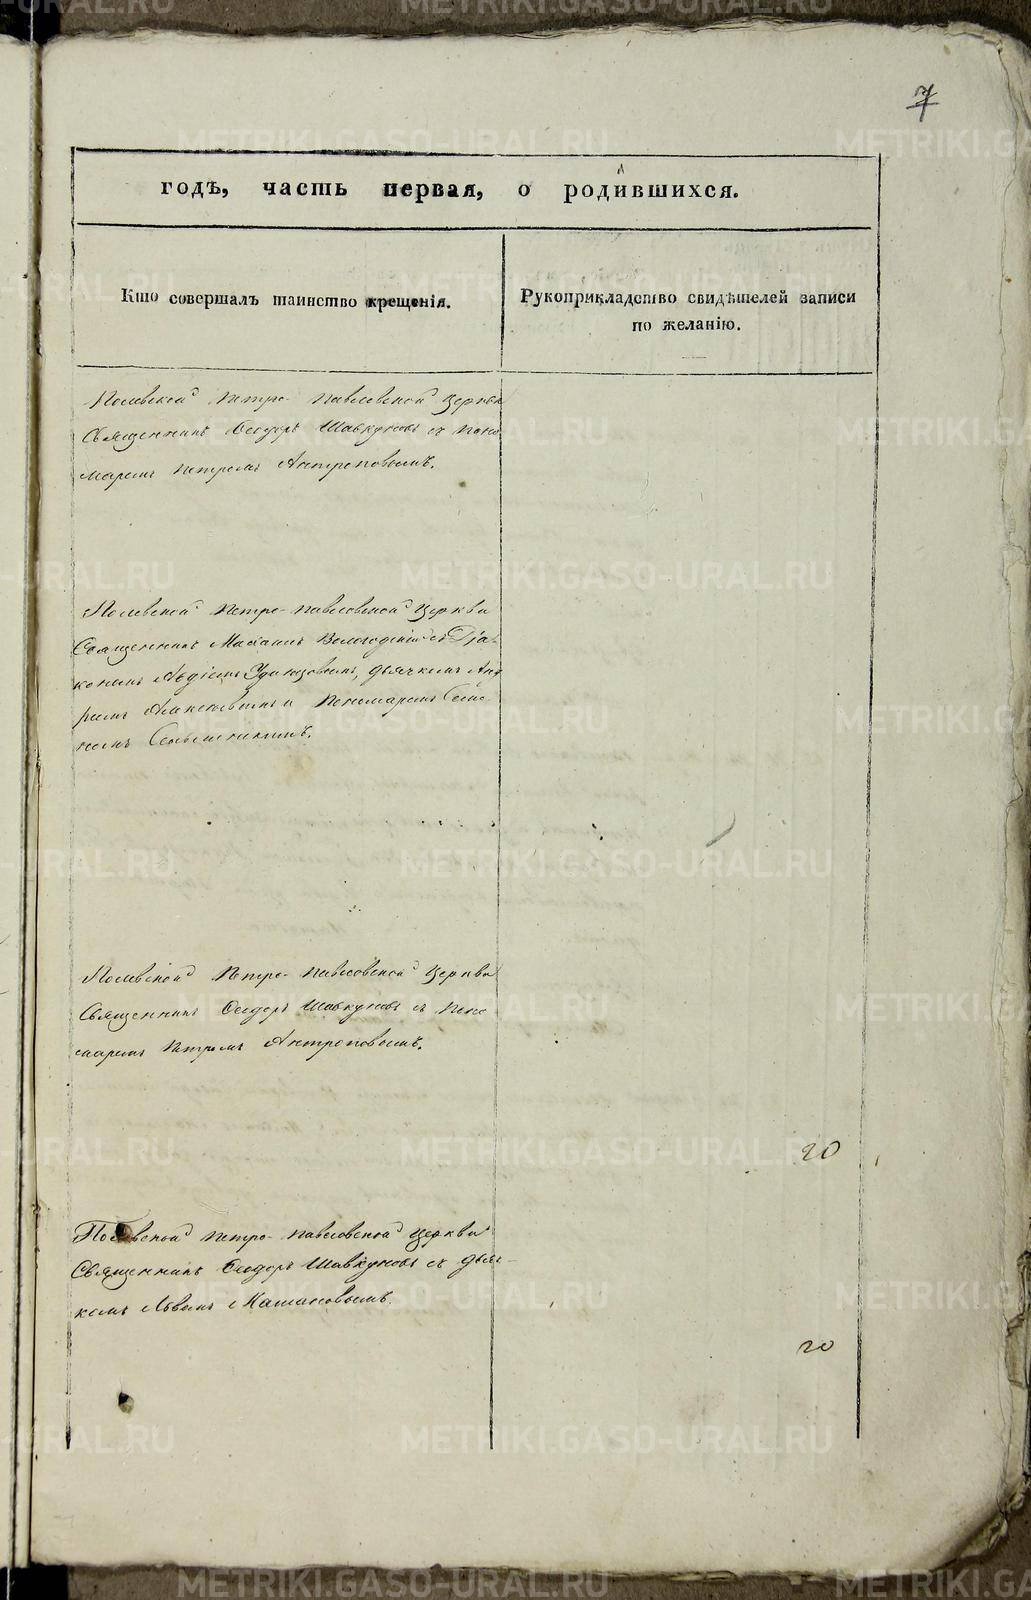 7
годъ, часть первая, о родившихся.
Кто совершалъ таинство крещенія.
Рукоприкладство свидѣтелей записи
по желанію.
Полевской Петро-Павловской Церкви
Священникъ Ѳеодоръ Шавкуновъ съ поно
маремъ Петромъ Антроповымъ.
Полевской Петро-Павловской Церкви
Священникъ съ Діа
кономъ дьячкомъ Анд
реемъ и пономаремъ
Полевской Петро-Павловской Церкви
Священникъ Ѳеодоръ Шавкуновъ съ поно
маремъ Петромъ Антроповымъ.
20
Полевской Петро-Павловской Церкви
Священникъ Ѳеодоръ Шавкуновъ съ дьяч-
комъ Львомъ
20
METRIKI.GASO-URAL.RU